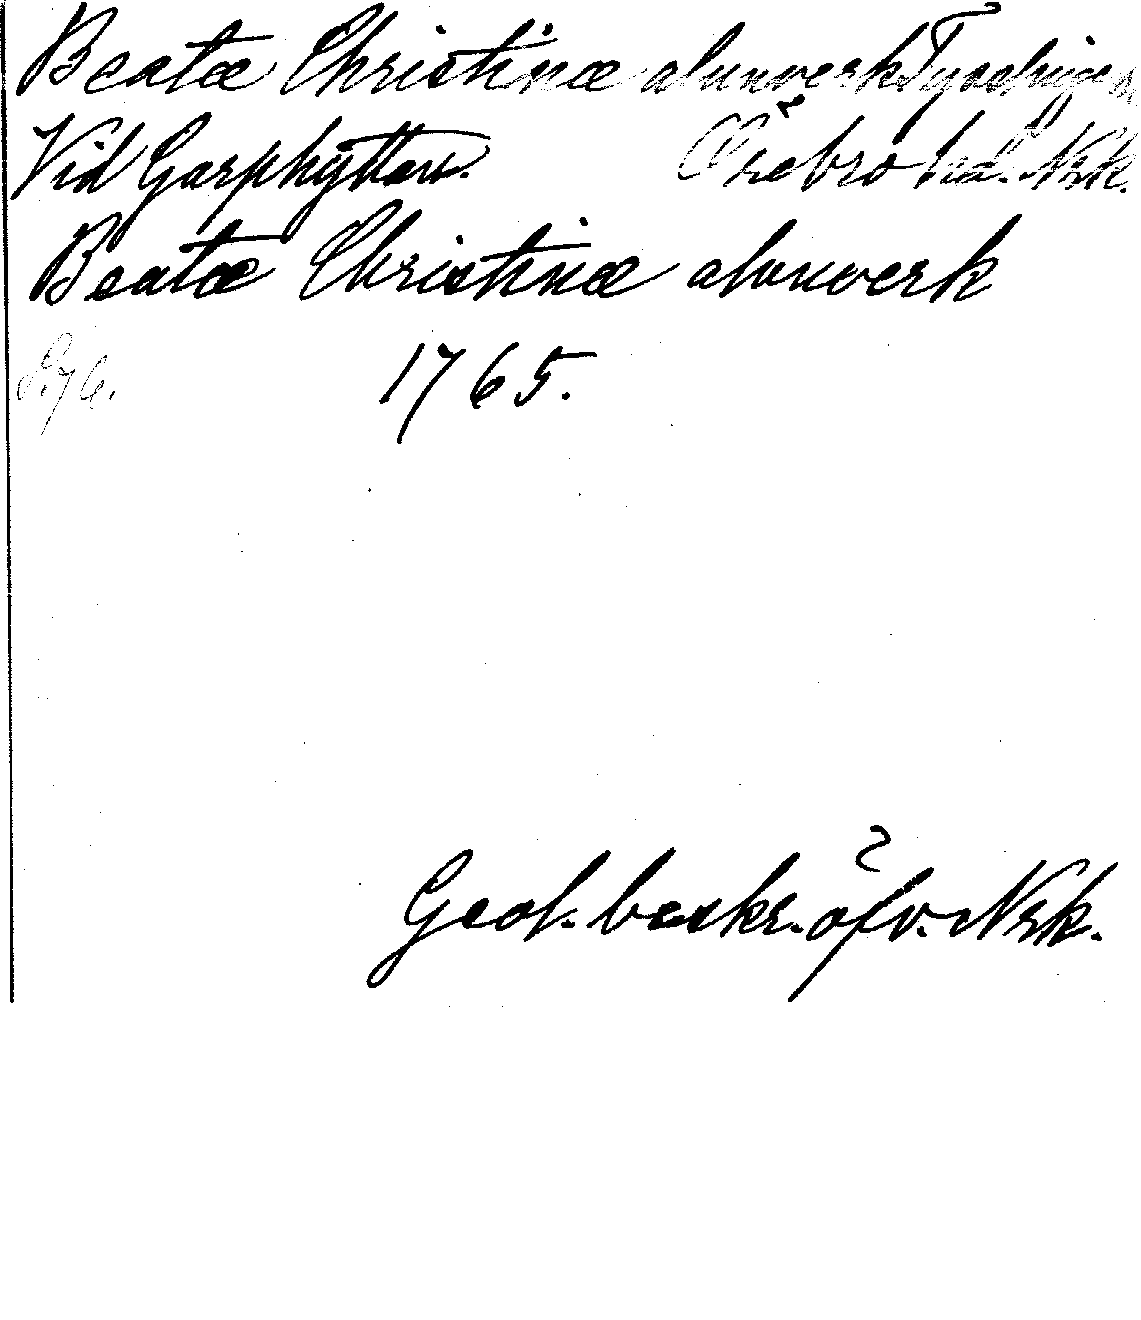 Beatæ Christinæ alunverk Tysslinge sn
Vid Garphyttan. Örebro hd. Nrk.
Beatæ Christinæ alunverk
S. 76. 1765.
Geol. beskr. öfv. Nrk.